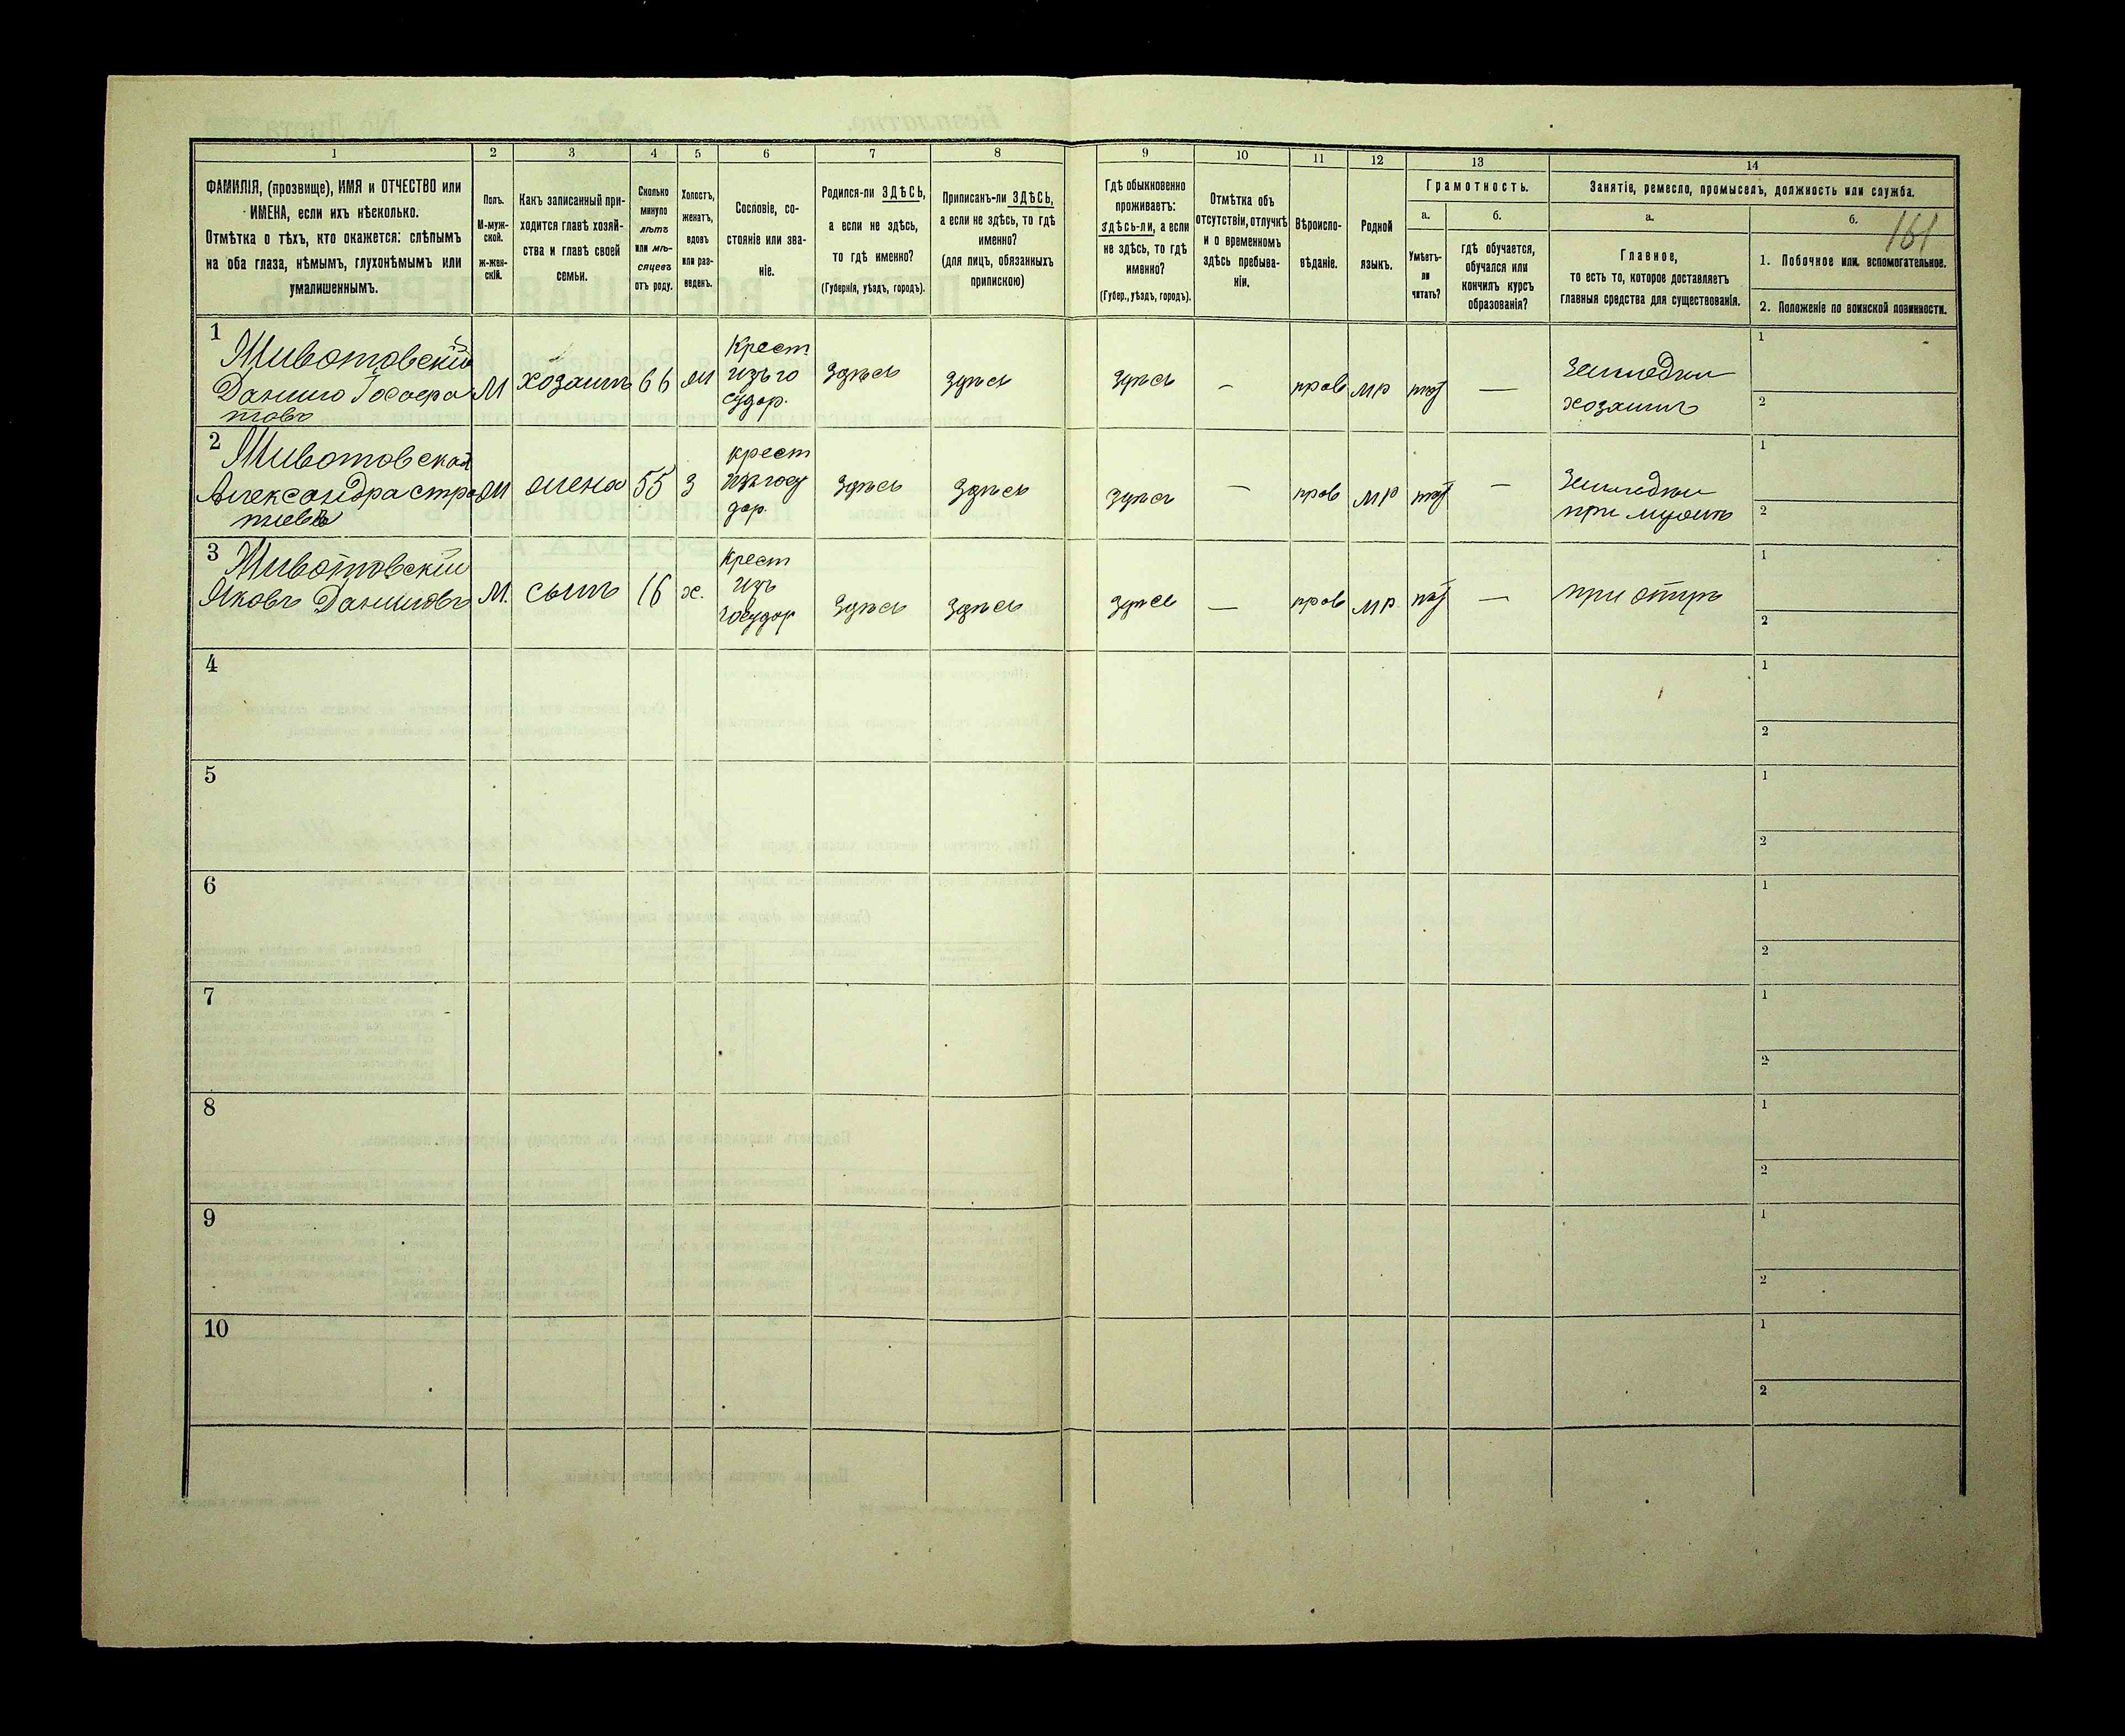 1 2 3 4 5 6 7 8 9 10 11 12 13 14
ФАМИЛІЯ, (прозвище), ИМЯ и ОТЧЕСТВО или
ИМЕНА, если ихъ нѣсколько.
Отмѣтка о тѣхъ, кто окажется: слѣпымъ
на оба глаза, нѣмымъ, глухонѣмымъ или
умалишеннымъ.
Полъ.
М-муж-
ской.
ж-жен-
скій.
Какъ записанный при-
ходится главѣ хозяй-
ства и главѣ своей
семьи.
Сколько
минуло
лѣтъ
или мѣ-
сяцевъ
отъ роду.
Холостъ,
женатъ,
вдовъ
или раз-
веденъ.
Сословіе, со-
стояніе или зва-
ніе.
Родился-ли ЗДѢСЬ,
а если не здѣсь,
то гдѣ именно?
(Губернія, уѣздъ, городъ).
Приписанъ-ли ЗДѢСЬ,
а если не здѣсь, то гдѣ
именно?
(для лицъ, обязанныхъ
припискою)
Гдѣ обыкновенно
проживаетъ:
здѣсь-ли, а если
не здѣсь, то гдѣ
именно?
(Губер., уѣздъ, городъ).
Отмѣтка объ
отсутствіи, отлучкѣ
и о временномъ
здѣсь пребыва-
ніи.
Вѣроиспо-
вѣданіе.
Родной
языкъ.
Грамотность.
а.
Умѣетъ-
ли
читать?
б.
гдѣ обучается,
обучался или
кончилъ курсъ
образованія?
Занятіе, ремесло, промыселъ, должность или служба.
а.
Главное,
то есть то, которое доставляетъ
главныя средства для существованія.
б.
161
1. Побочное или вспомогательное.
2. Положеніе по воинской повинности.
1
Животовскій
Данило
товъ
М
хозяинъ
66
ж
Крест
изъ го
судар.
здѣсь
здѣсь
здѣсь
—
прав
мр
нѣт
—
Земледѣл
хозяинъ
1
2
2
Животовская
Александра
ж
жена
55
з
крест
изъ госу
дар.
здѣсь
здѣсь
здѣсь
—
прав
мр
нѣт
—
Земледѣл
при мужѣ
1
2
3
Животовскій
Яковъ Даниловъ
М.
сынъ
16
х.
Крест
изъ
государ
здѣсь
здѣсь
здѣсь
—
прав
мр.
нѣт
—
при отцѣ
1
2
4
1
2
5
1
2
6
1
2
7
1
2
8
1
2
9
1
2
10
1
2